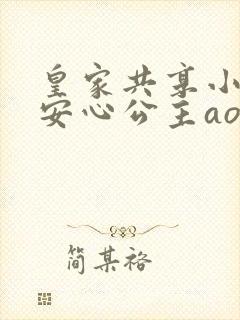 皇家共享小
安心公主ao
简某袼